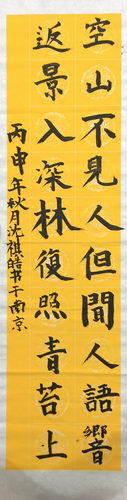 空山不見人但聞人語響
返景入深林復照青苔上
丙申年秋月沈祺皓书于南京